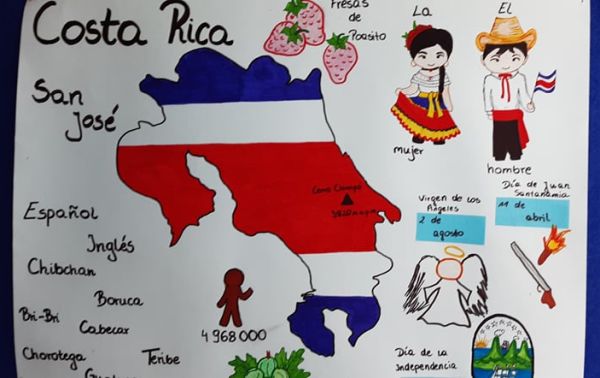 Costa Rica
San
José
Fresas
de
Poasito
La
mujer
El
hombre
Español
Inglés
Chibchan
Boruca
Bri-Bri
Cabecar
Chorotega
Teribe
4 968 000
Virgen de los
Ángeles
2 de
agosto
Día de Juan
Santamamia
11 de
abril
Día de la
Independencia